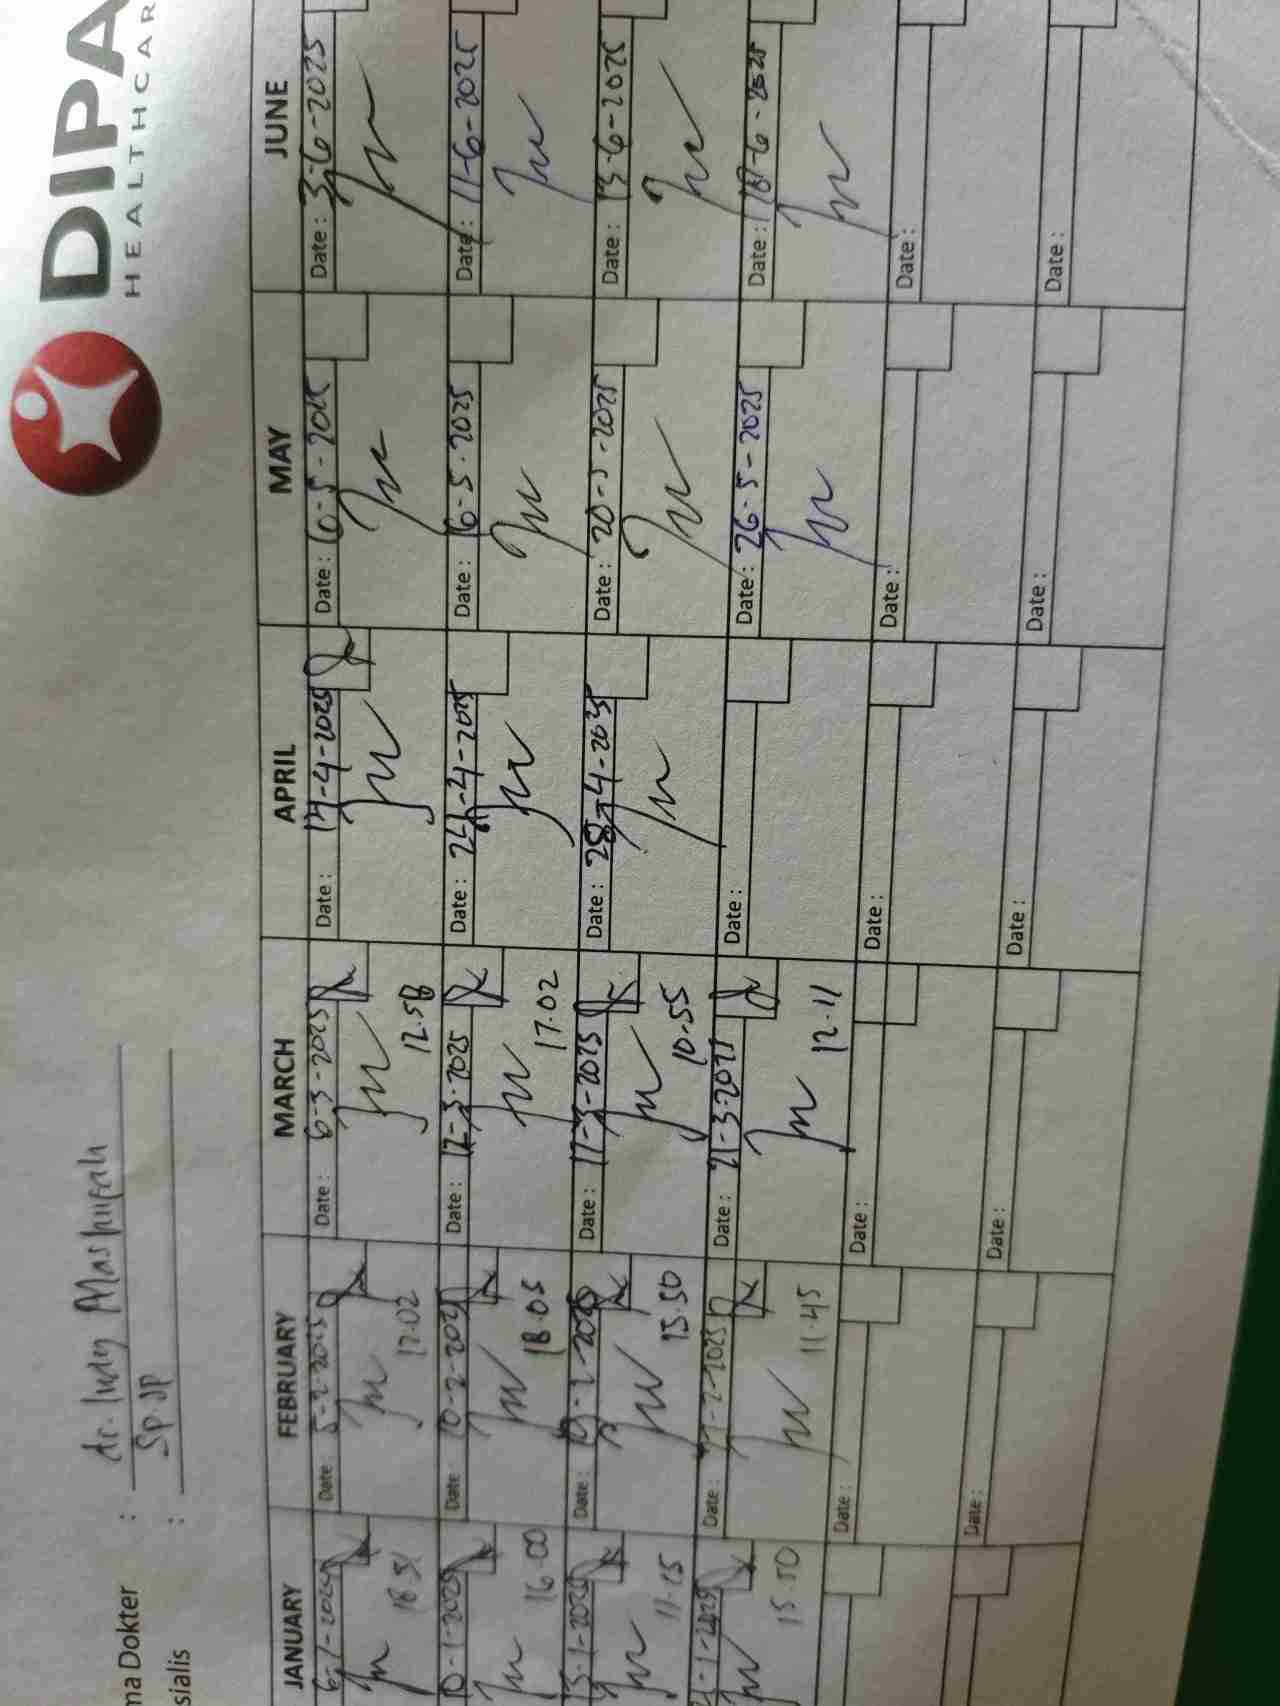 DIPA
HEALTHCAR
ma Dokter : dr. Indy
sialis : Sp.JP
JANUARY FEBRUARY MARCH APRIL MAY JUNE
6-1-2025 Date 5-2-2025 Date : 6-3-2025 Date : 14-4-2025 Date : 6-5-2025 Date : 3-6-2025
17.02 12.58
10-1-2025 Date 10-2-2025 Date : 12-3-2025 Date : Date : 16-5-2025 Date : 11-6-2025
16.00 18.05 17.02
13-1-2025 Date : 19-2-2025 Date : 17-3-2025 Date : 28-4-2025 Date : 20-5-2025 Date : 13-6-2025
11.15 15.50 10.55
-1-2025 Date : -2-2025 Date : 21-3-2025 Date : Date : 26-5-2025 Date : 18-6-2025
15.50 11.45 12.11
Date : Date : Date : Date : Date :
Date : Date : Date : Date : Date :